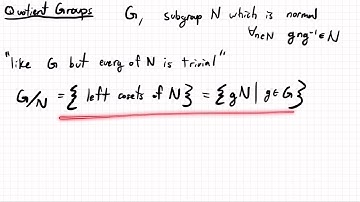 Quotient Groups G, subgroup N which is normal
∀n∈N gng⁻¹∈N
"like G but every of N is trivial"
G/N = { left cosets of N } = { gN | g∈G }